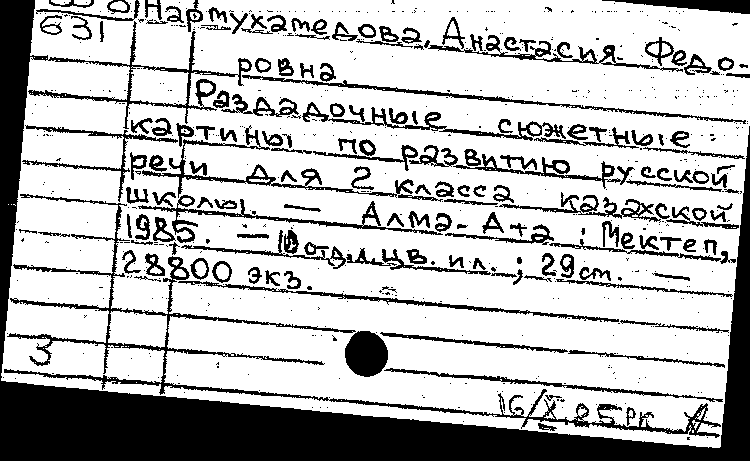 Нартухамедова, Анастасия Федо-
631
ровна.
Раздадочные сюжетные
картины по развитию русской
речи для 2 класса казахской
школы. — Алма-Ата : Мектеп,
1985. — 10 отд.л.цв. ил. ; 29 ст. —
28800 экз.
3
16/X.85 РК